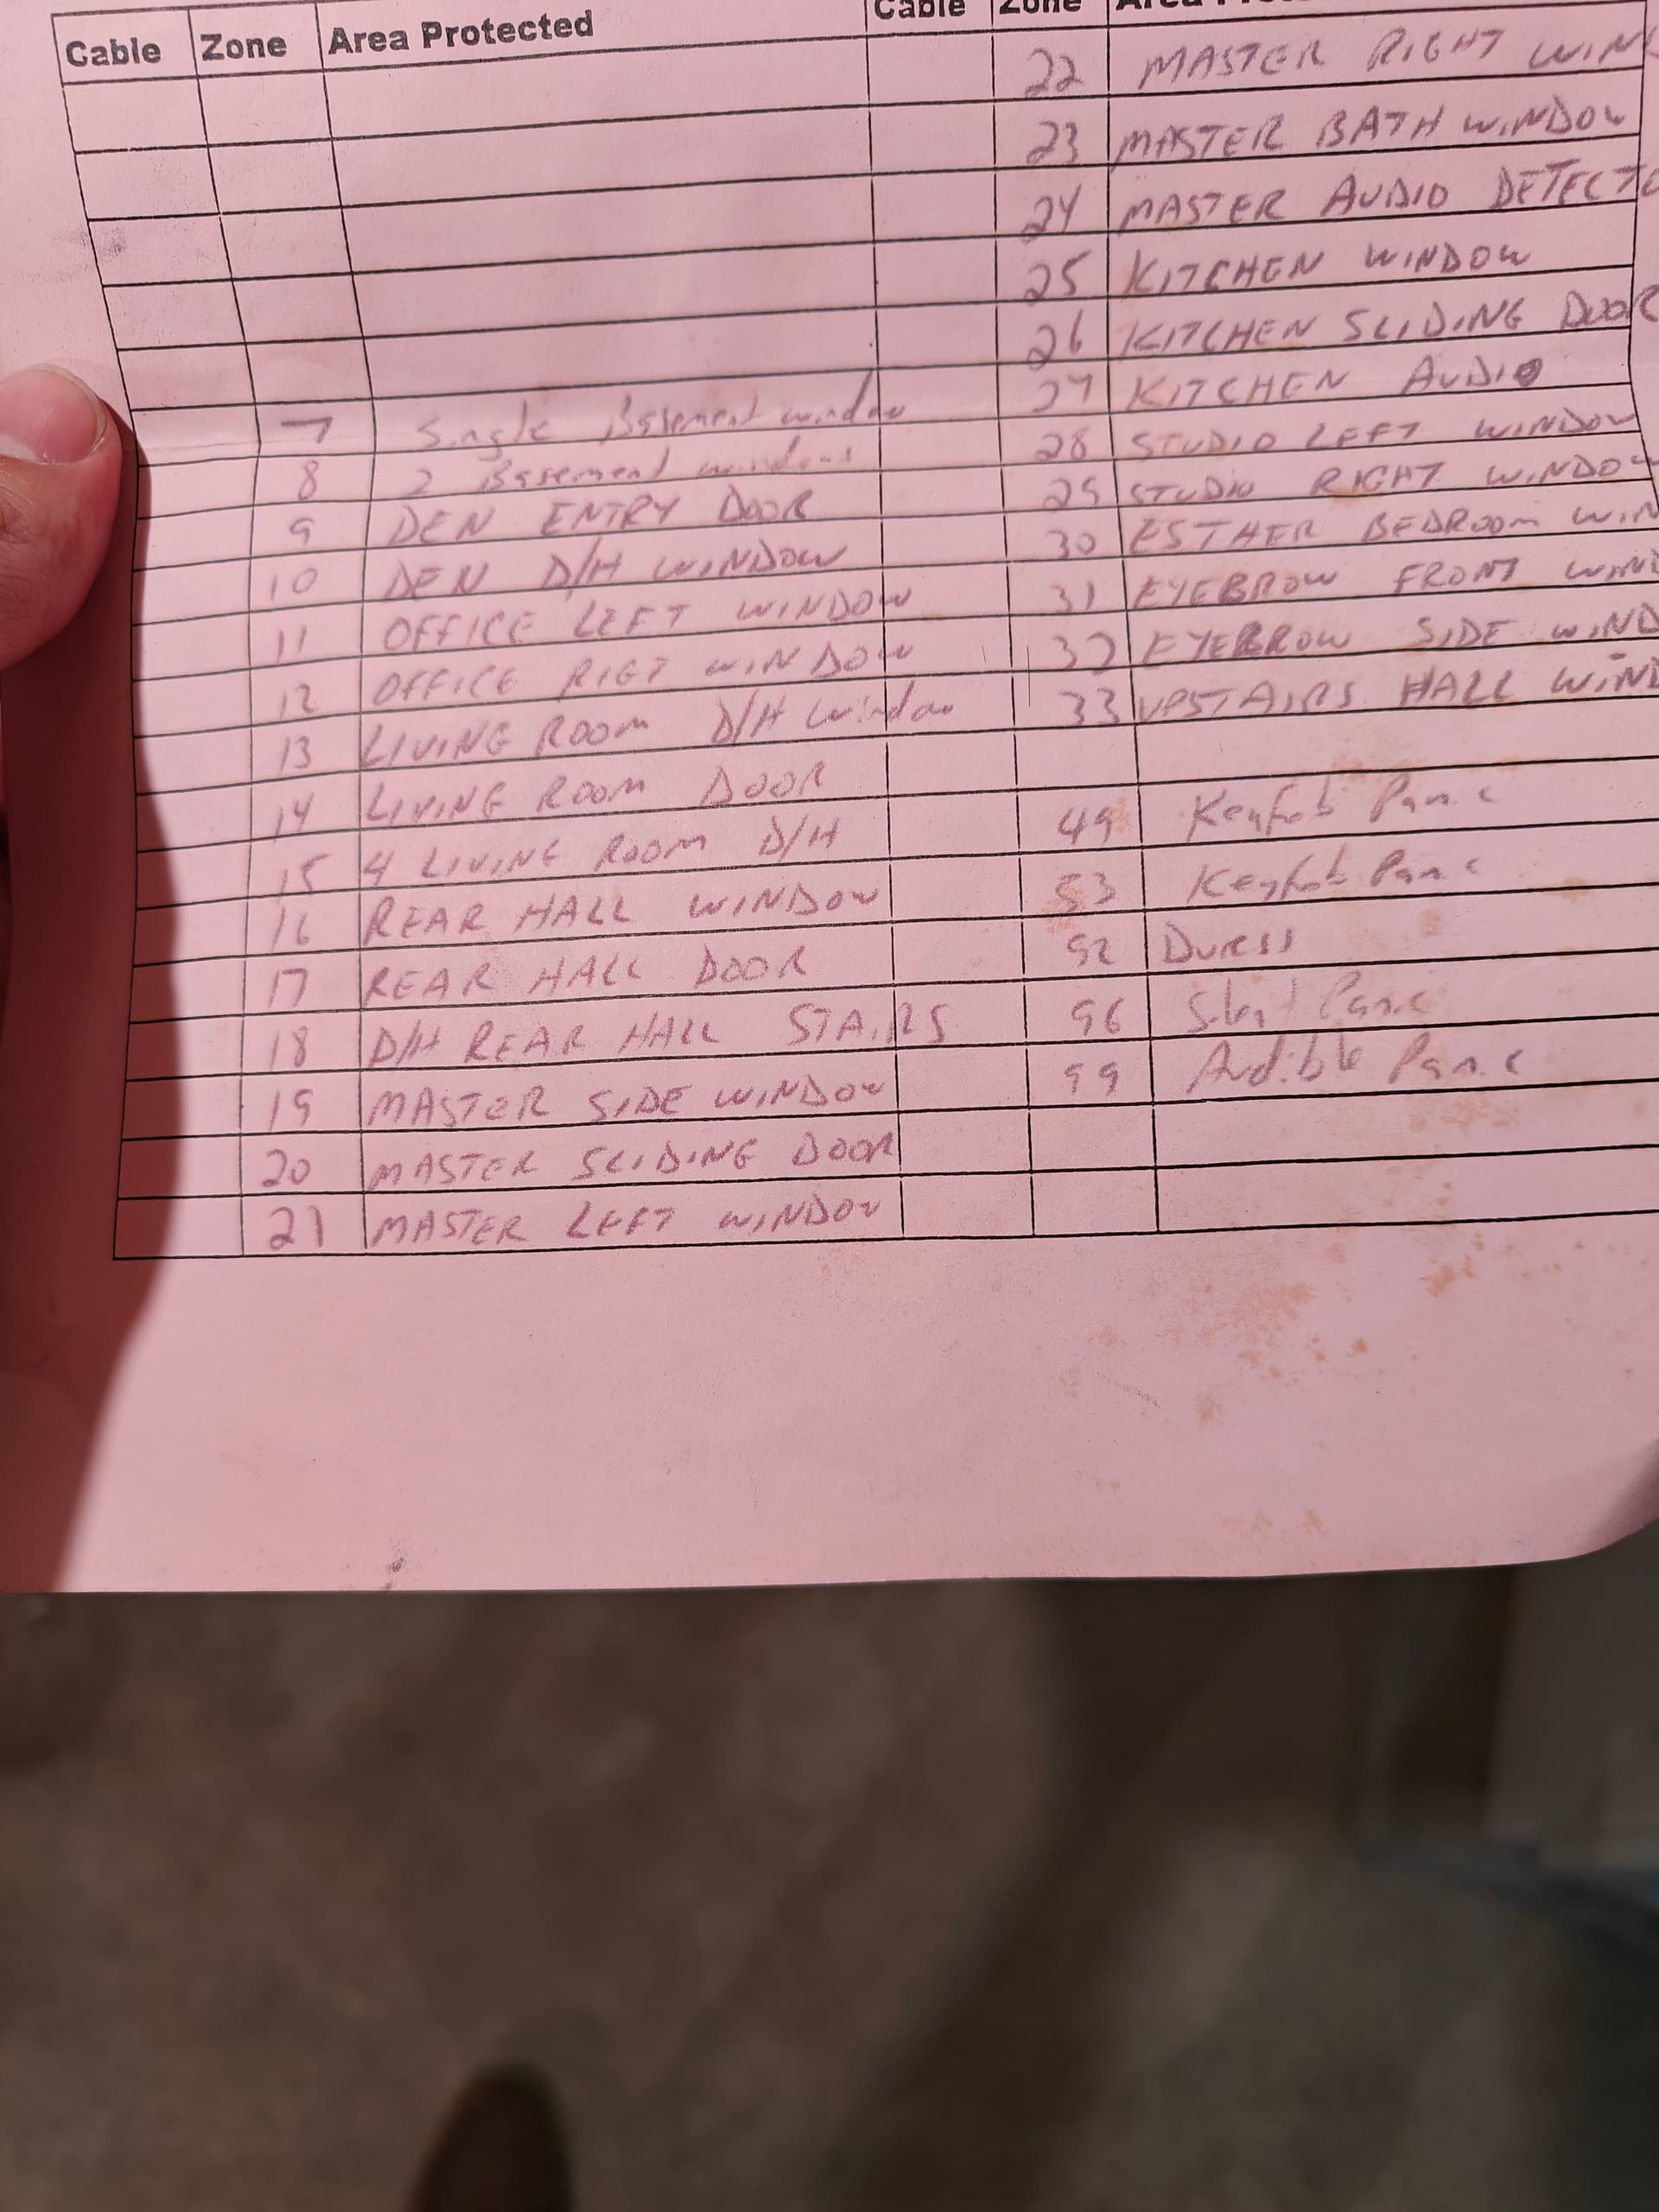 Cable Zone Area Protected
7 Single Basement window
8 2 Basement windows
9 DEN ENTRY DOOR
10 DEN D/H WINDOW
11 OFFICE LEFT WINDOW
12 OFFICE RIGT WINDOW
13 LIVING ROOM D/H Window
14 LIVING ROOM DOOR
15 4 LIVING ROOM D/H
16 REAR HALL WINDOW
17 REAR HALL DOOR
18 D/H REAR HALL STAIRS
19 MASTER SIDE WINDOW
20 MASTER SLIDING DOOR
21 MASTER LEFT WINDOW
Cable Zone Area
22 MASTER RIGHT WIN
23 MASTER BATH WINDOW
24 MASTER AUDIO DETECTO
25 KITCHEN WINDOW
26 KITCHEN SLIDING DOOR
27 KITCHEN AUDIO
28 STUDIO LEFT WINDOW
29 STUDIO RIGHT WINDOW
30 ESTHER BEDROOM WIN
31 EYEBROW FRONT WIND
32 EYEBROW SIDE WIND
33 UPSTAIRS HALL WIND
49 Keyfob Panic
53 Keyfob Panic
92 Duress
96 Panic
99 Audible Panic